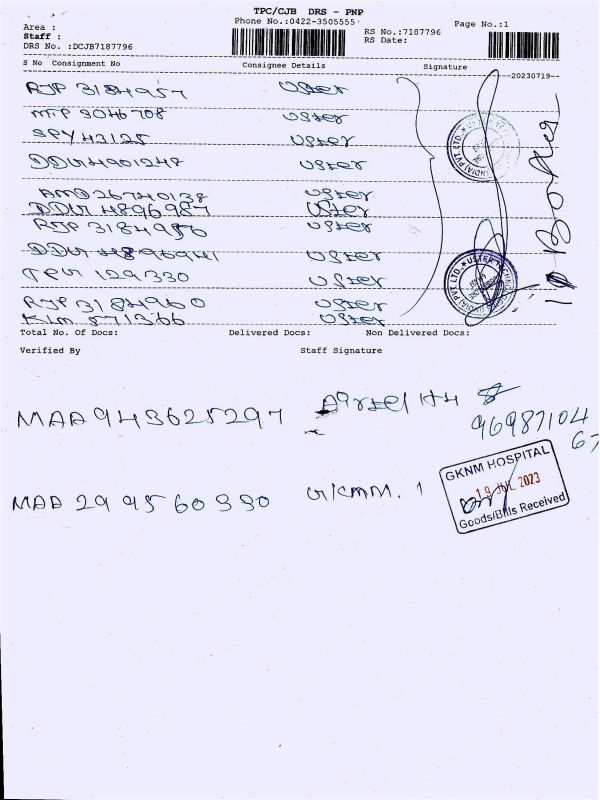 TPC/CJB DRS - PNP
Area :
Phone No.:0422-3505555
Page No.:1
Staff :
RS No.:7187796
DRS No. :DCJB7187796
RS Date:
S No Consignment No Consignee Details Signature
20230719
RJP 3184957 Uster
MTP 3046708 Uster
SPY 43125 Uster
DDU 4901247 Uster
AMD 26740138 Uster
DDU 4896987 Uster
RJP 3184956 Uster
DDU 4896941 Uster
129330 Uster
RJP 3184960 Uster
KLM 571366 Uster
10 Box
USTER
Total No. Of Docs: Delivered Docs: Non Delivered Docs:
Verified By Staff Signature
MAA 943625297 Airtel
96987104
67
MAA 299560330 1
GKNM HOSPITAL
19 JUL 2023
Goods/Bills Received